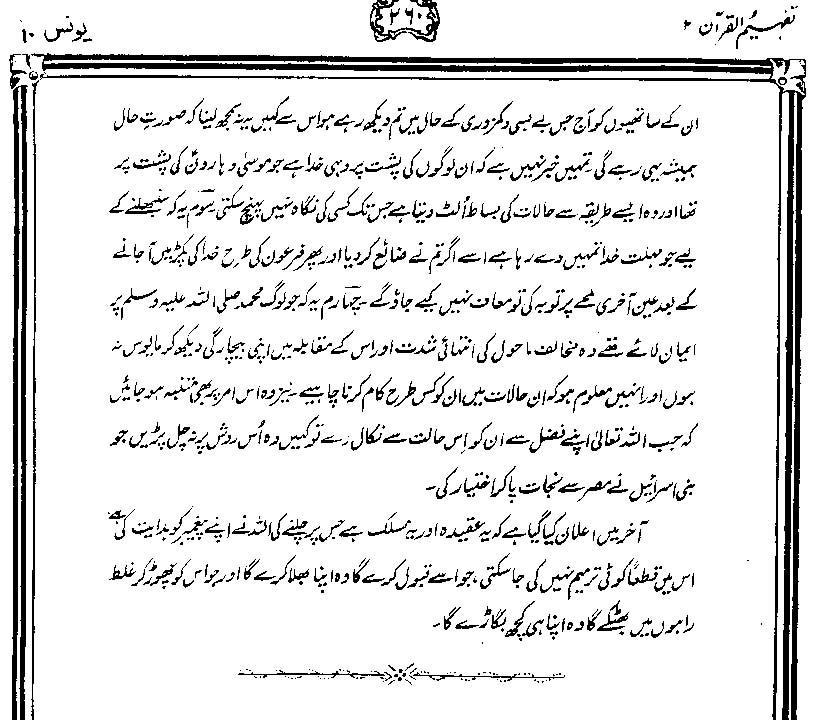 تفہیم القرآن ۲
۲۶۰
یونس ۱۰
ان کے ساتھیوں کو آج جس بے بسی و کمزوری کے حال میں تم دیکھ رہے ہو اس سے کہیں یہ نہ سمجھ لینا کہ صورتِ حال
ہمیشہ یہی رہے گی۔ تمہیں خبر نہیں ہے کہ ان لوگوں کی پشت پر وہی خدا ہے جو موسیٰ و ہارونؑ کی پشت پر
تھا اور وہ ایسے طریقہ سے حالات کی بساط اُلٹ دیتا ہے جس تک کسی کی نگاہ نہیں پہنچ سکتی۔ سوم یہ کہ سنبھلنے کے
لیے جو مہلت خدا تمہیں دے رہا ہے اسے اگر تم نے ضائع کر دیا اور پھر فرعون کی طرح خدا کی پکڑ میں آ جانے
کے بعد عین آخری لمحے پر توبہ کی تو معاف نہیں کیے جاؤ گے۔ چہارم یہ کہ جو لوگ محمد صلی اللہ علیہ وسلم پر
ایمان لائے تھے وہ مخالف ماحول کی انتہائی شدت اور اس کے مقابلہ میں اپنی بیچارگی دیکھ کر مایوس نہ
ہوں اور انہیں معلوم ہو کہ ان حالات میں ان کو کس طرح کام کرنا چاہیے۔ نیز وہ اس امر پر بھی متنبہ ہو جائیں
کہ جب اللہ تعالیٰ اپنے فضل سے ان کو اِس حالت سے نکال دے تو کہیں وہ اُس روش پر نہ چل پڑیں جو
بنی اسرائیل نے مصر سے نجات پا کر اختیار کی۔
آخر میں اعلان کیا گیا ہے کہ یہ عقیدہ اور یہ مسلک ہے جس پر چلنے کی اللہ نے اپنے پیغمبر کو ہدایت کی ہے،
اس میں قطعاً کوئی ترمیم نہیں کی جا سکتی، جو اسے قبول کرے گا وہ اپنا بھلا کرے گا اور جو اس کو چھوڑ کر غلط
راہوں میں بھٹکے گا وہ اپنا ہی کچھ بگاڑے گا۔